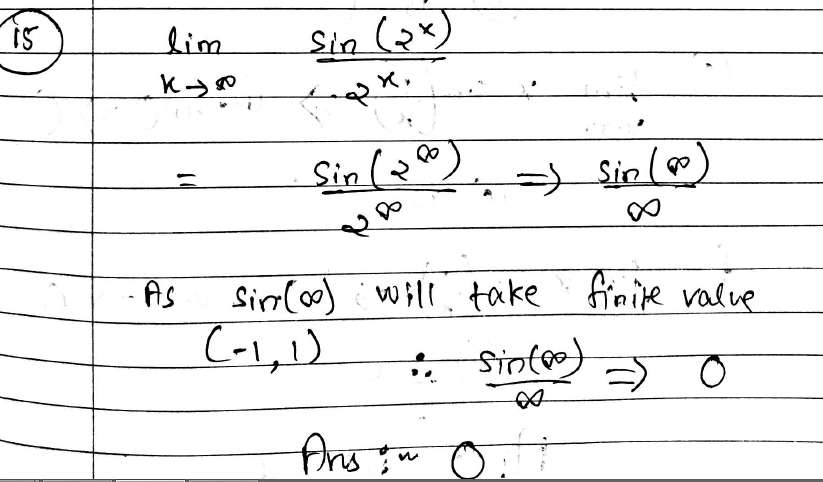 15 lim sin (2^x)
x→∞ 2^x.
= sin (2^∞) . ⇒ sin (∞)
2^∞ ∞
As sin(∞) will take finite value
(-1, 1) ∴ sin(∞) ⇒ 0
∞
Ans :~ 0.